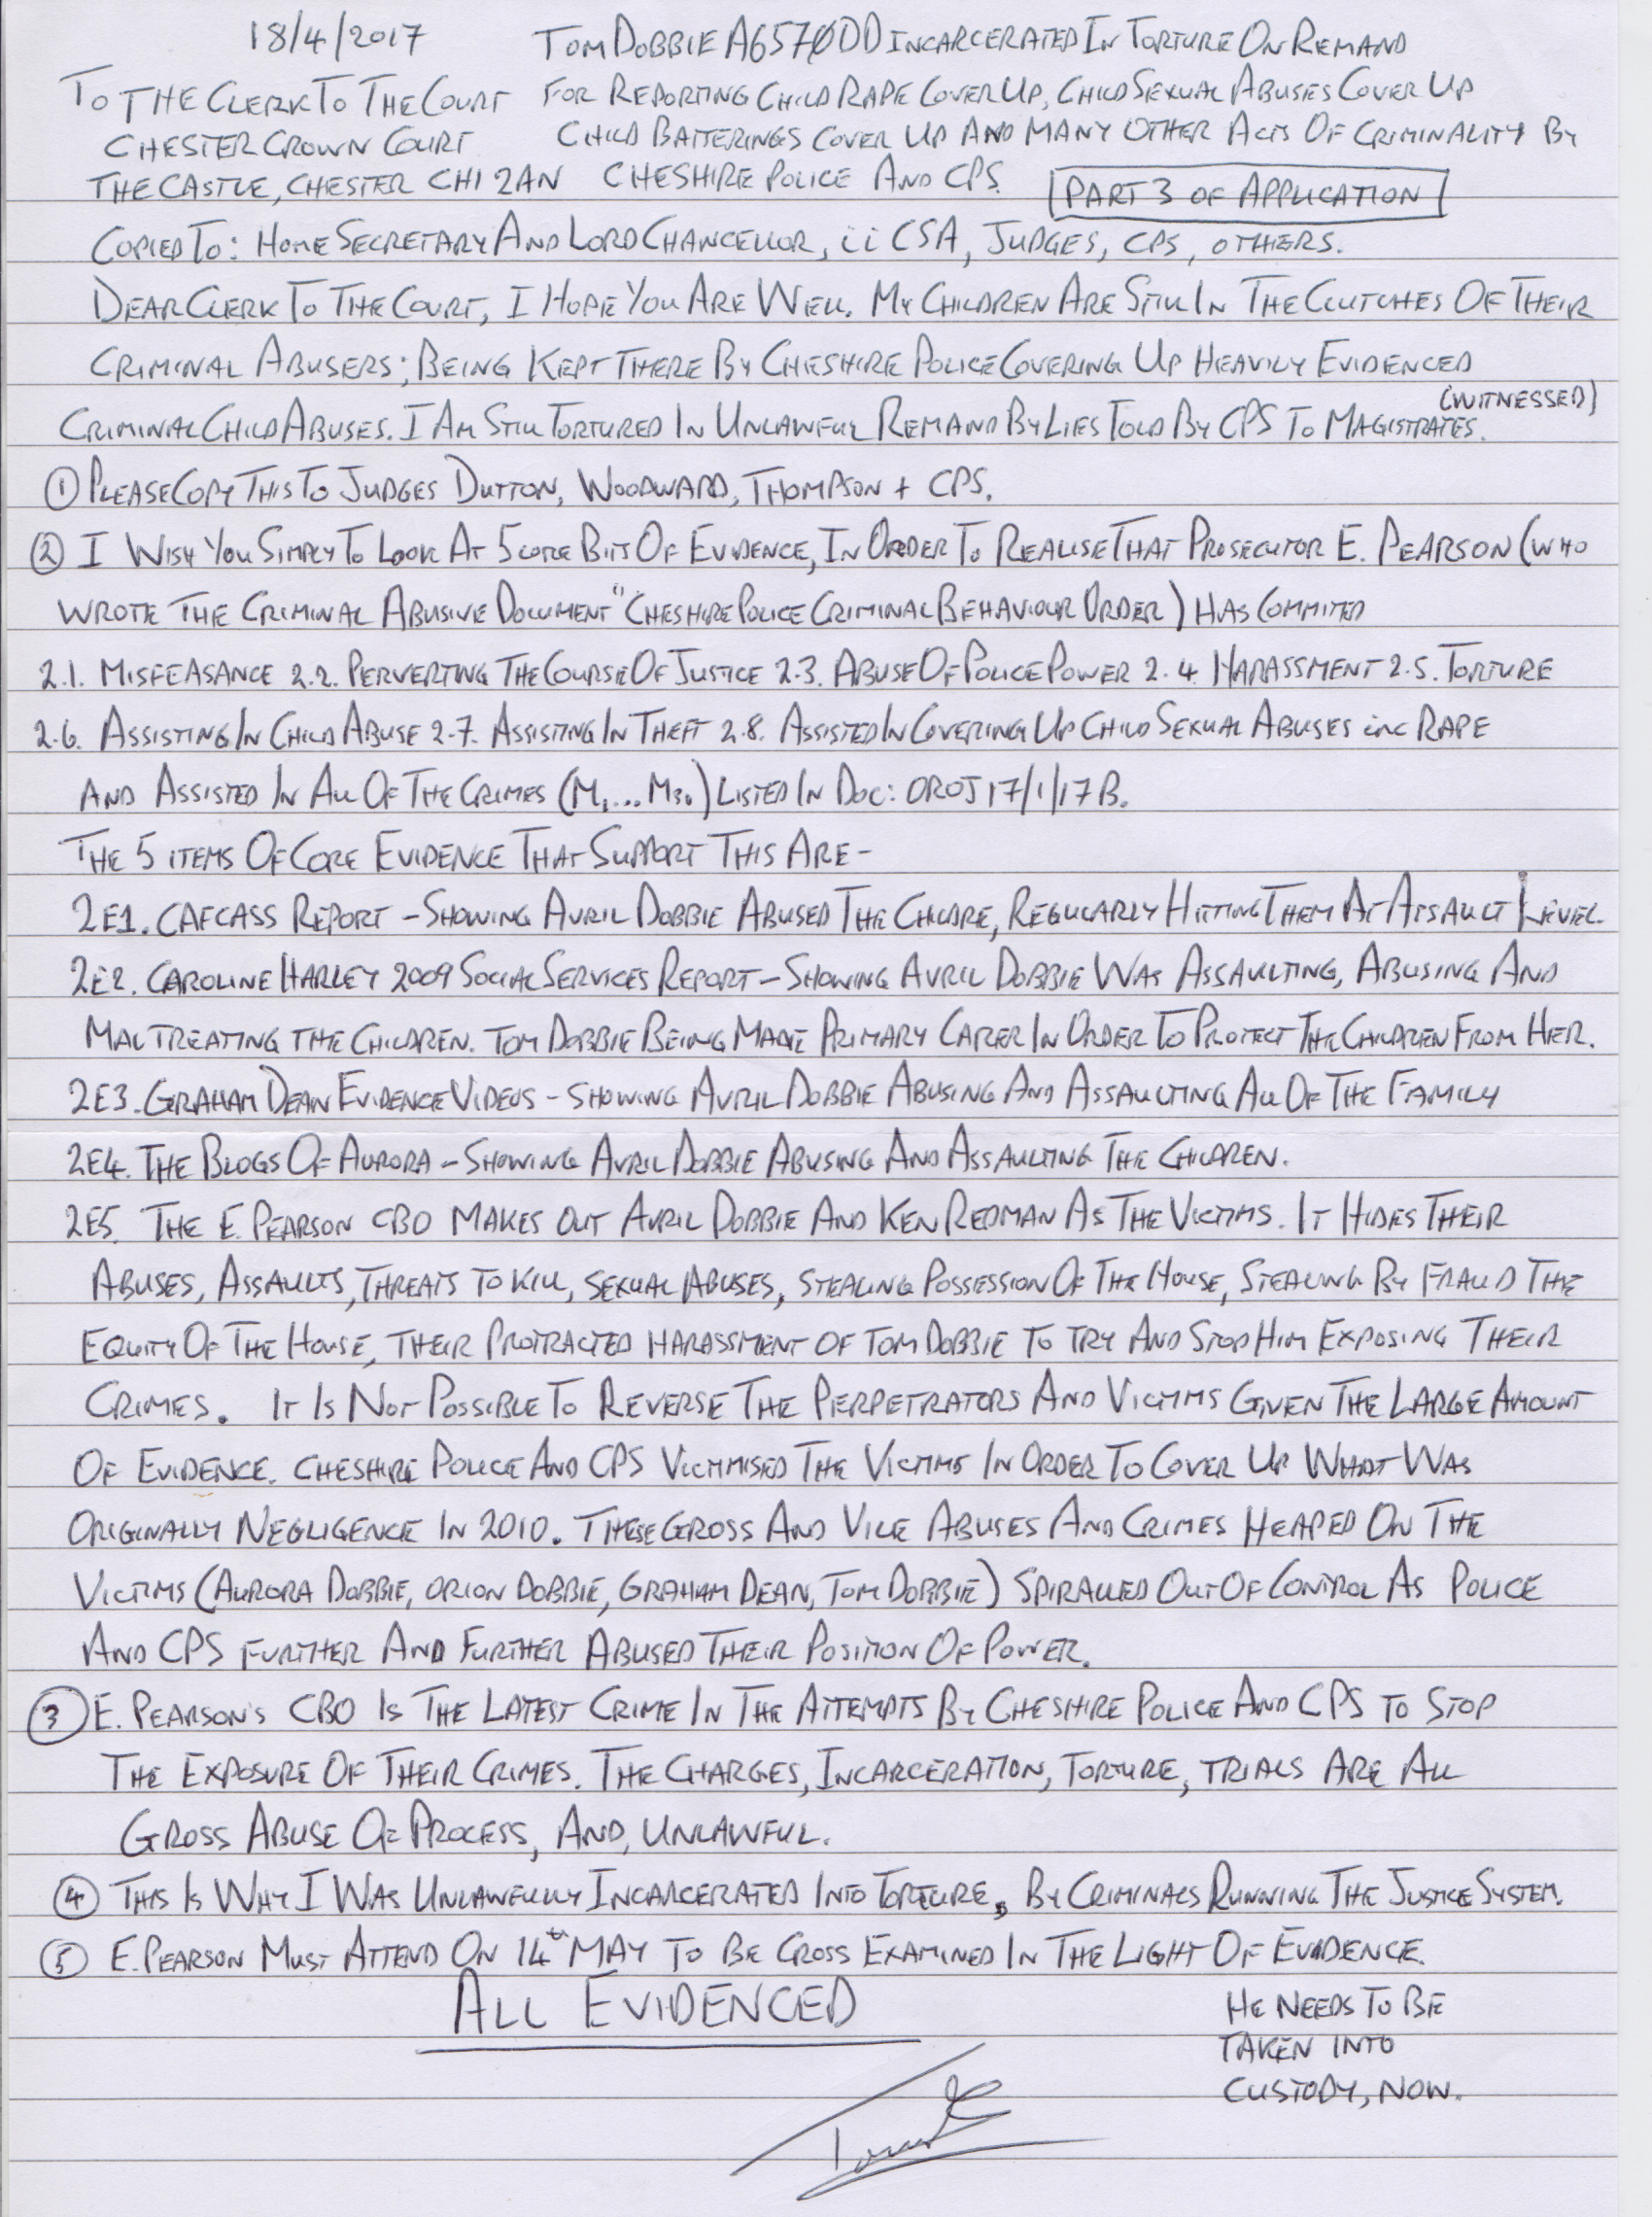 18/4/2017 TOM DOBBIE A6570DD INCARCERATED IN TORTURE ON REMAND
TO THE CLERK TO THE COURT FOR REPORTING CHILD RAPE COVER UP, CHILD SEXUAL ABUSES COVER UP
CHESTER CROWN COURT CHILD BATTERINGS COVER UP AND MANY OTHER ACTS OF CRIMINALITY BY
THE CASTLE, CHESTER CH1 2AN CHESHIRE POLICE AND CPS. PART 3 OF APPLICATION
COPIED TO: HOME SECRETARY AND LORD CHANCELLOR, iiCSA, JUDGES, CPS, OTHERS.
DEAR CLERK TO THE COURT, I HOPE YOU ARE WELL. MY CHILDREN ARE STILL IN THE CLUTCHES OF THEIR
CRIMINAL ABUSERS; BEING KEPT THERE BY CHESHIRE POLICE COVERING UP HEAVILY EVIDENCED
(WITNESSED)
CRIMINAL CHILD ABUSES. I AM STILL TORTURED IN UNLAWFUL REMAND BY LIES TOLD BY CPS TO MAGISTRATES.
① PLEASE COPY THIS TO JUDGES DUTTON, WOODWARD, THOMPSON + CPS.
② I WISH YOU SIMPLY TO LOOK AT 5 CORE BITS OF EVIDENCE, IN ORDER TO REALISE THAT PROSECUTOR E. PEARSON (WHO
WROTE THE CRIMINAL ABUSIVE DOCUMENT "CHESHIRE POLICE CRIMINAL BEHAVIOUR ORDER) HAS COMMITED
2.1. MISFEASANCE 2.2. PERVERTING THE COURSE OF JUSTICE 2.3. ABUSE OF POLICE POWER 2.4. HARASSMENT 2.5. TORTURE
2.6. ASSISTING IN CHILD ABUSE 2.7. ASSISTING IN THEFT 2.8. ASSISTED IN COVERING UP CHILD SEXUAL ABUSES inc RAPE
AND ASSISTED IN ALL OF THE CRIMES (M1...M30) LISTED IN DOC: OROJ 17/1/17B.
THE 5 ITEMS OF CORE EVIDENCE THAT SUPPORT THIS ARE -
2E1. CAFCASS REPORT - SHOWING AVRIL DOBBIE ABUSED THE CHILDRE, REGULARLY HITTING THEM AT ASSAULT LEVEL.
2E2. CAROLINE HARLEY 2009 SOCIAL SERVICES REPORT - SHOWING AVRIL DOBBIE WAS ASSAULTING, ABUSING AND
MALTREATING THE CHILDREN. TOM DOBBIE BEING MADE PRIMARY CARER IN ORDER TO PROTECT THE CHILDREN FROM HER.
2E3. GRAHAM DEAN EVIDENCE VIDEOS - SHOWING AVRIL DOBBIE ABUSING AND ASSAULTING ALL OF THE FAMILY
2E4. THE BLOGS OF AURORA - SHOWING AVRIL DOBBIE ABUSING AND ASSAULTING THE CHILDREN.
2E5. THE E. PEARSON CBO MAKES OUT AVRIL DOBBIE AND KEN REDMAN AS THE VICTIMS. IT HIDES THEIR
ABUSES, ASSAULTS, THREATS TO KILL, SEXUAL ABUSES, STEALING POSSESSION OF THE HOUSE, STEALING BY FRAUD THE
EQUITY OF THE HOUSE, THEIR PROTRACTED HARASSMENT OF TOM DOBBIE TO TRY AND STOP HIM EXPOSING THEIR
CRIMES. IT IS NOT POSSIBLE TO REVERSE THE PERPETRATORS AND VICTIMS GIVEN THE LARGE AMOUNT
OF EVIDENCE. CHESHIRE POLICE AND CPS VICTIMISED THE VICTIMS IN ORDER TO COVER UP WHAT WAS
ORIGINALLY NEGLIGENCE IN 2010. THESE GROSS AND VILE ABUSES AND CRIMES HEAPED ON THE
VICTIMS (AURORA DOBBIE, ORION DOBBIE, GRAHAM DEAN, TOM DOBBIE) SPIRALLED OUT OF CONTROL AS POLICE
AND CPS FURTHER AND FURTHER ABUSED THEIR POSITION OF POWER.
③ E. PEARSON'S CBO IS THE LATEST CRIME IN THE ATTEMPTS BY CHESHIRE POLICE AND CPS TO STOP
THE EXPOSURE OF THEIR CRIMES. THE CHARGES, INCARCERATION, TORTURE, TRIALS ARE ALL
GROSS ABUSE OF PROCESS, AND, UNLAWFUL.
④ THIS IS WHY I WAS UNLAWFULLY INCARCERATED INTO TORTURE, BY CRIMINALS RUNNING THE JUSTICE SYSTEM.
⑤ E. PEARSON MUST ATTEND ON 14th MAY TO BE CROSS EXAMINED IN THE LIGHT OF EVIDENCE.
ALL EVIDENCED HE NEEDS TO BE
TAKEN INTO
CUSTODY, NOW.